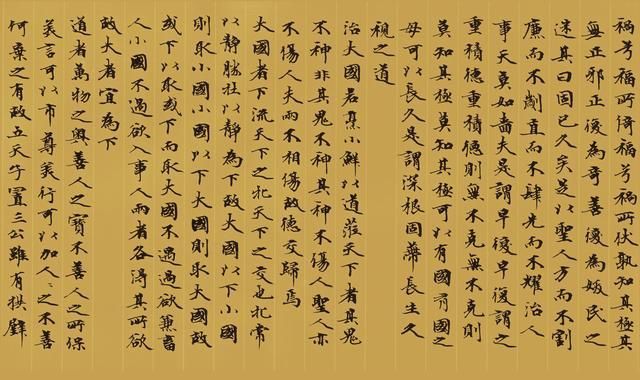 禍兮福所倚福兮禍所伏孰知其極其
無正邪正復為奇善復為妖民之
迷其日固已久矣是以聖人方而不割
廉而不劌直而不肆光而不耀治人
事天莫如嗇夫是謂早復早復謂之
重積德重積德則無不克無不克則
莫知其極莫知其極可以有國有國之
母可以長久是謂深根固蔕長生久
視之道
治大國若烹小鮮以道莅天下者其鬼
不神非其鬼不神其神不傷人聖人亦
不傷人夫兩不相傷故德交歸焉
大國者下流天下之牝天下之交也牝常
以靜勝牡以靜為下故大國以下小國
則取小國小國以下大國則取大國故
或下以取或下而取大國不過過欲兼畜
人小國不過欲入事人兩者各得其所欲
故大者宜為下
道者萬物之奧善人之寶不善人之所保
美言可以市尊美行可以加人〻之不善
何棄之有故立天子置三公雖有拱璧